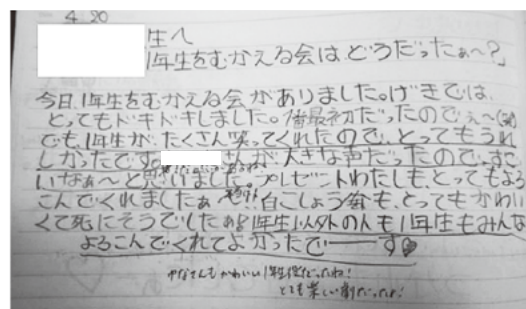 4 20
生へ
1年生をむかえる会は、どうだったぁ〜?」
今日、1年生をむかえる会がありました。げきでは、
とってもドキドキしました。1番最初だったのでぇ〜
でも、1年生が、たくさん笑ってくれたので、とってもうれ
しかったです。さんが大きな声だったので、すご
いなぁ〜と思いました。プレゼントわたしも、とってもよろ
こんでくれましたぁ 自こしょうかいも、とってもかわい
くて死にそうでしたぁ 1年生以外の人も1年生もみんな
よろこんでくれてよかったで――す
かわいい1年生役だったね!
とても楽しい劇だったよ!